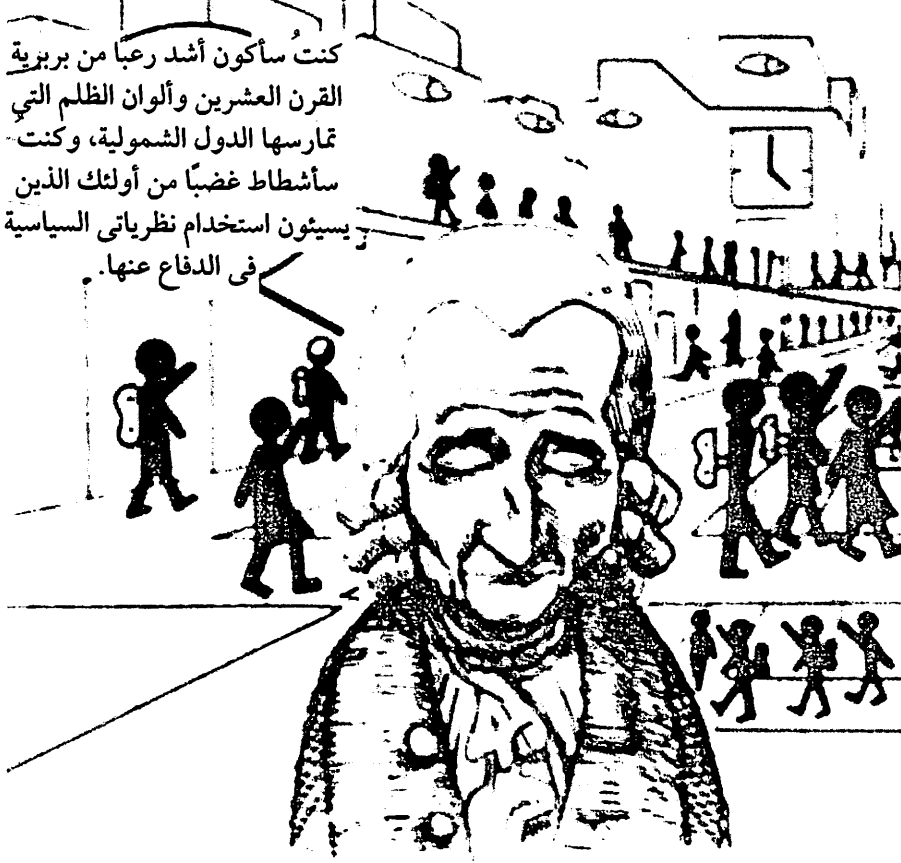 كنتُ سأكون أشد رعبا من بربرية
القرن العشرين وألوان الظلم التي
تمارسها الدول الشمولية، وكنتُ
سأشطاط غضبًا من أولئك الذين
يسيئون استخدام نظرياتى السياسية
فى الدفاع عنها.